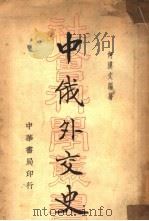 何漢文編著
中俄外交史
中華書局印行